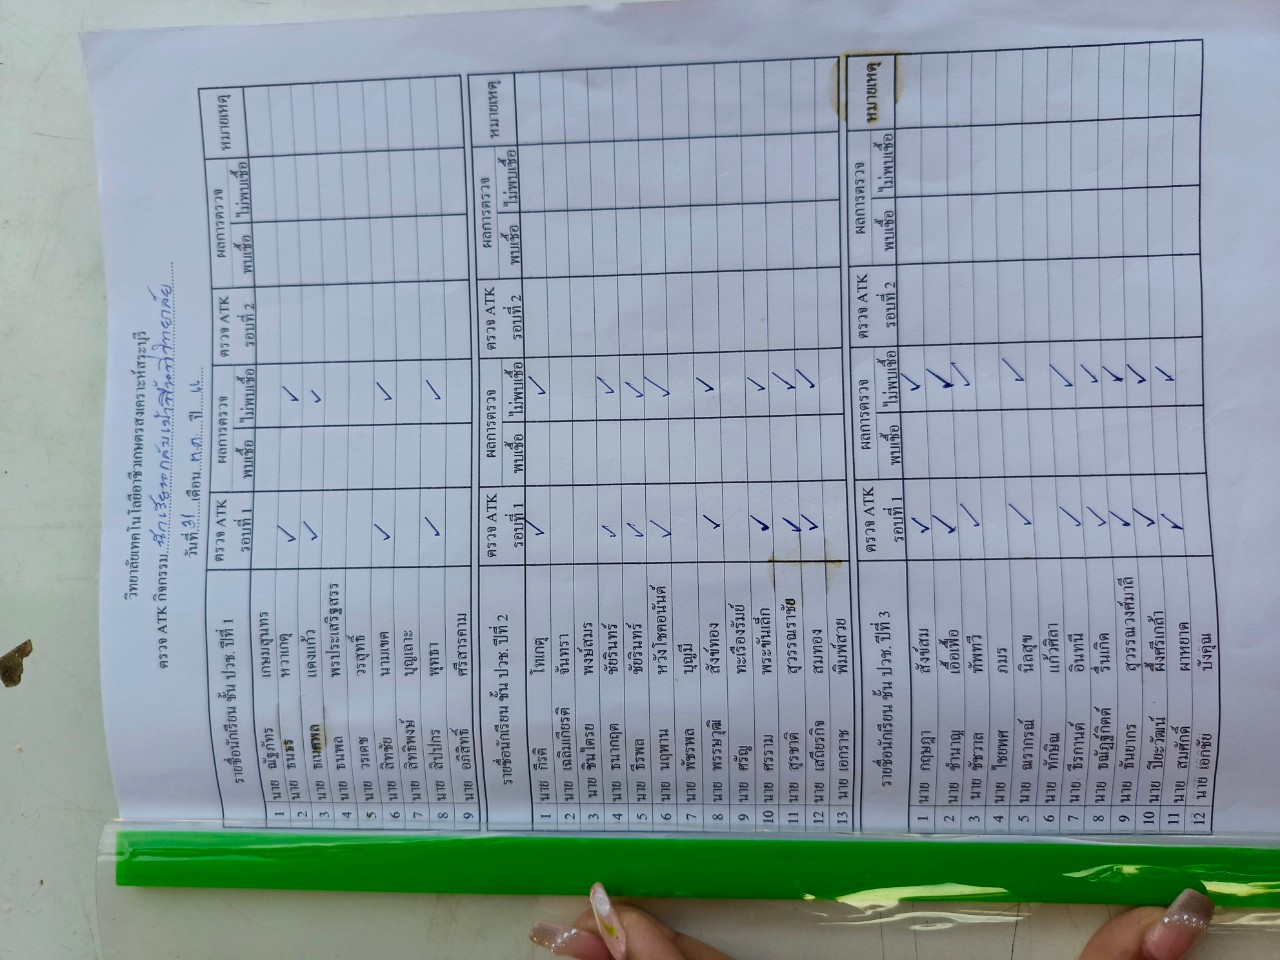 วิทยาลัยเทคโนโลยีอาชีวเกษตรสงเคราะห์สระบุรี
ตรวจ ATK กิจกรรม นักเรียนกลับเข้า
วันที่ 31 เดือน ต.ค. ปี
รายชื่อนักเรียน ชั้น ปวช. ปีที่ 1 ตรวจ ATK รอบที่ 1 ผลการตรวจ พบเชื้อ ไม่พบเชื้อ ตรวจ ATK รอบที่ 2 ผลการตรวจ พบเชื้อ ไม่พบเชื้อ หมายเหตุ
1 นาย ณัฐภัทร เกษมสุนทร
2 นาย ธนธร หวาเกตุ ✓ ✓
3 นาย ธเนศพล แดงแก้ว ✓ ✓
4 นาย ธนพล พรประเสริฐสรร
5 นาย วรเดช วรสุทธิ์
6 นาย สิทธิชัย นามเขต ✓ ✓
7 นาย สิทธิพงษ์ บุญเลาะ
8 นาย สิปปกร พุทธา ✓ ✓
9 นาย อภิสิทธิ์ ศรีสารคาม
รายชื่อนักเรียน ชั้น ปวช. ปีที่ 2 ตรวจ ATK รอบที่ 1 ผลการตรวจ พบเชื้อ ไม่พบเชื้อ ตรวจ ATK รอบที่ 2 ผลการตรวจ พบเชื้อ ไม่พบเชื้อ หมายเหตุ
1 นาย กีรติ โทเกตุ ✓ ✓
2 นาย เฉลิมเกียรติ จันทรา
3 นาย ชินไตรย พงษ์สมร
4 นาย ธนากฤต ชัยรินทร์ ✓ ✓
5 นาย ธีรพล ชัยรินทร์ ✓ ✓
6 นาย นฤพาน หวังโชคอนันต์ ✓ ✓
7 นาย พัชรพล บุญมี
8 นาย พรรษวุฒิ สังข์ทอง ✓ ✓
9 นาย ศรัญ ทะเรืองรัมย์
10 นาย ศรราม พระขันเล็ก ✓ ✓
11 นาย สุรชาติ สุวรรณราชัย ✓ ✓
12 นาย เสถียรกิจ สมทอง ✓ ✓
13 นาย เอกราช พิมพ์สวย
รายชื่อนักเรียน ชั้น ปวช. ปีที่ 3 ตรวจ ATK รอบที่ 1 ผลการตรวจ พบเชื้อ ไม่พบเชื้อ ตรวจ ATK รอบที่ 2 ผลการตรวจ พบเชื้อ ไม่พบเชื้อ หมายเหตุ
1 นาย กฤษฎา สังข์สม ✓ ✓
2 นาย ชำนาญ เอื้อเฟื้อ ✓ ✓
3 นาย ชัชวาล ทัพทวี ✓ ✓
4 นาย ไชยพศ ภมร
5 นาย ณรากรณ์ นิลสุข ✓ ✓
6 นาย ทักษิณ แก้วทิลา
7 นาย ธีรกานต์ อินทนี ✓ ✓
8 นาย ธณัฏฐ์กิตติ์ รื่นเกิด ✓ ✓
9 นาย ธันยากร สุวรรณวงศ์มาลี ✓ ✓
10 นาย ปิยะวัฒน์ ผึ้งศรีเกล้า ✓ ✓
11 นาย สมศักดิ์ ผาหยาด ✓ ✓
12 นาย เอกชัย บังคุณ